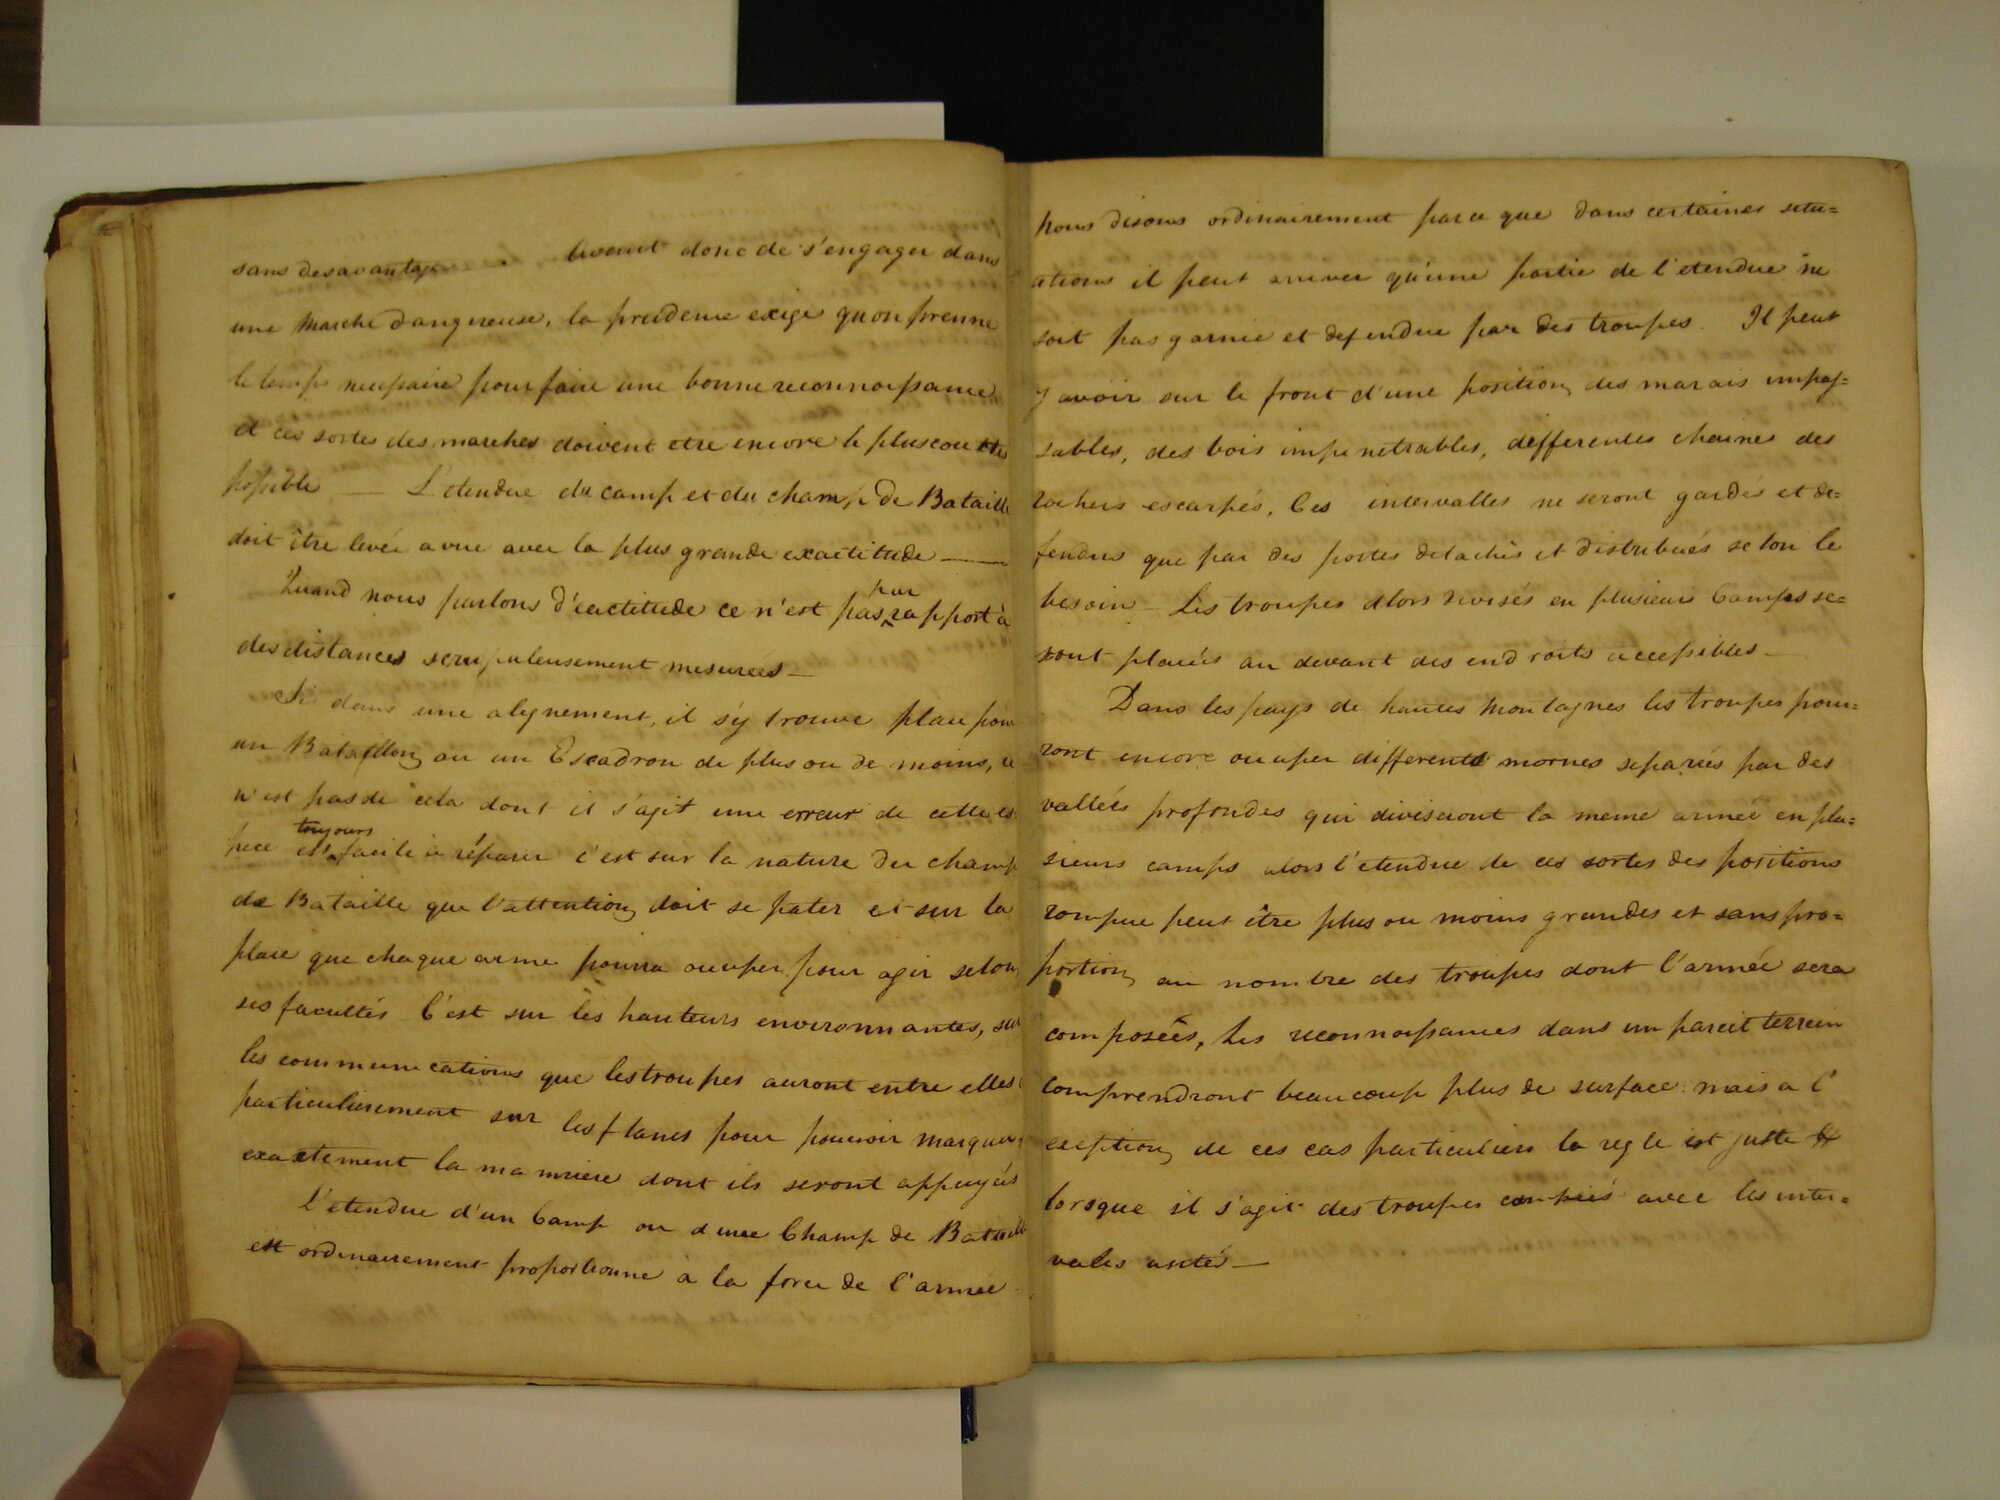 sans desavantage. Avant donc de s'engager dans
une Marche dangereuse, la prudence exige qu'on prenne
le temps necessaire pour faire une bonne reconnoissance
et ces sortes des marches doivent etre encore le plus courtes
possible — L'etendue du camp et du champ de Bataille
doit être levée a vue avec la plus grande exactitude —
Quand nous parlons d'eactitude ce n'est pas par rapport à
des distances scrupuleusement mesurées —
Si dans une alignement, il s'y trouve place pour
un Bataillon ou un Escadron de plus ou de moins, ce
n'est pas de cela dont il s'agit une erreur de cette es
pece est toujours facile à réparer c'est sur la nature du champ
de Bataille que l'attention doit se pater et sur la
place que chaque arme pourra occuper pour agir selon
ses facultés C'est sur les hauteurs environnantes, sur
les communications que les troupes auront entre elles
particulierement sur les flancs pour pouvoir marquer
exactement la maniere dont ils seront appuyés
L'etendue d'un Camp ou d'une Champ de Bataille
est ordinairement proportionne à la force de l'armee
Nous disons ordinairement parce que dans certaines situ=
ations il peut arriver qu'une partie de l'etendue ne
soit pas garnie et defendue par des troupes. Il peut
y avoir sur le front d'une position des marais impas=
sables, des bois impenetrables, differentes chaines des
rochers escarpés, Ces intervalles ne seront gardés et de=
fendus que par des postes detachés et distribués selon le
besoin — Les troupes alors divisés en plusieurs Camps se=
ront placés au devant des endroits accessibles —
Dans les pays de hautes Montagnes les troupes pour=
ront encore occuper differents mornes separées par des
vallées profondes qui diviseront la meme armée en plu=
sieurs camps alors l'etendue de ces sortes des positions
rompue peut être plus ou moins grandes et sans pro=
portion au nombre des troupes dont l'armée sera
composées, Les reconnoissances dans un pareil terrein
Comprendront beaucoup plus de surface: mais a l'
exeption de ces cas particuliers la regle est juste
lorsque il s'agit des troupes campés avec les inter=
vales usités —